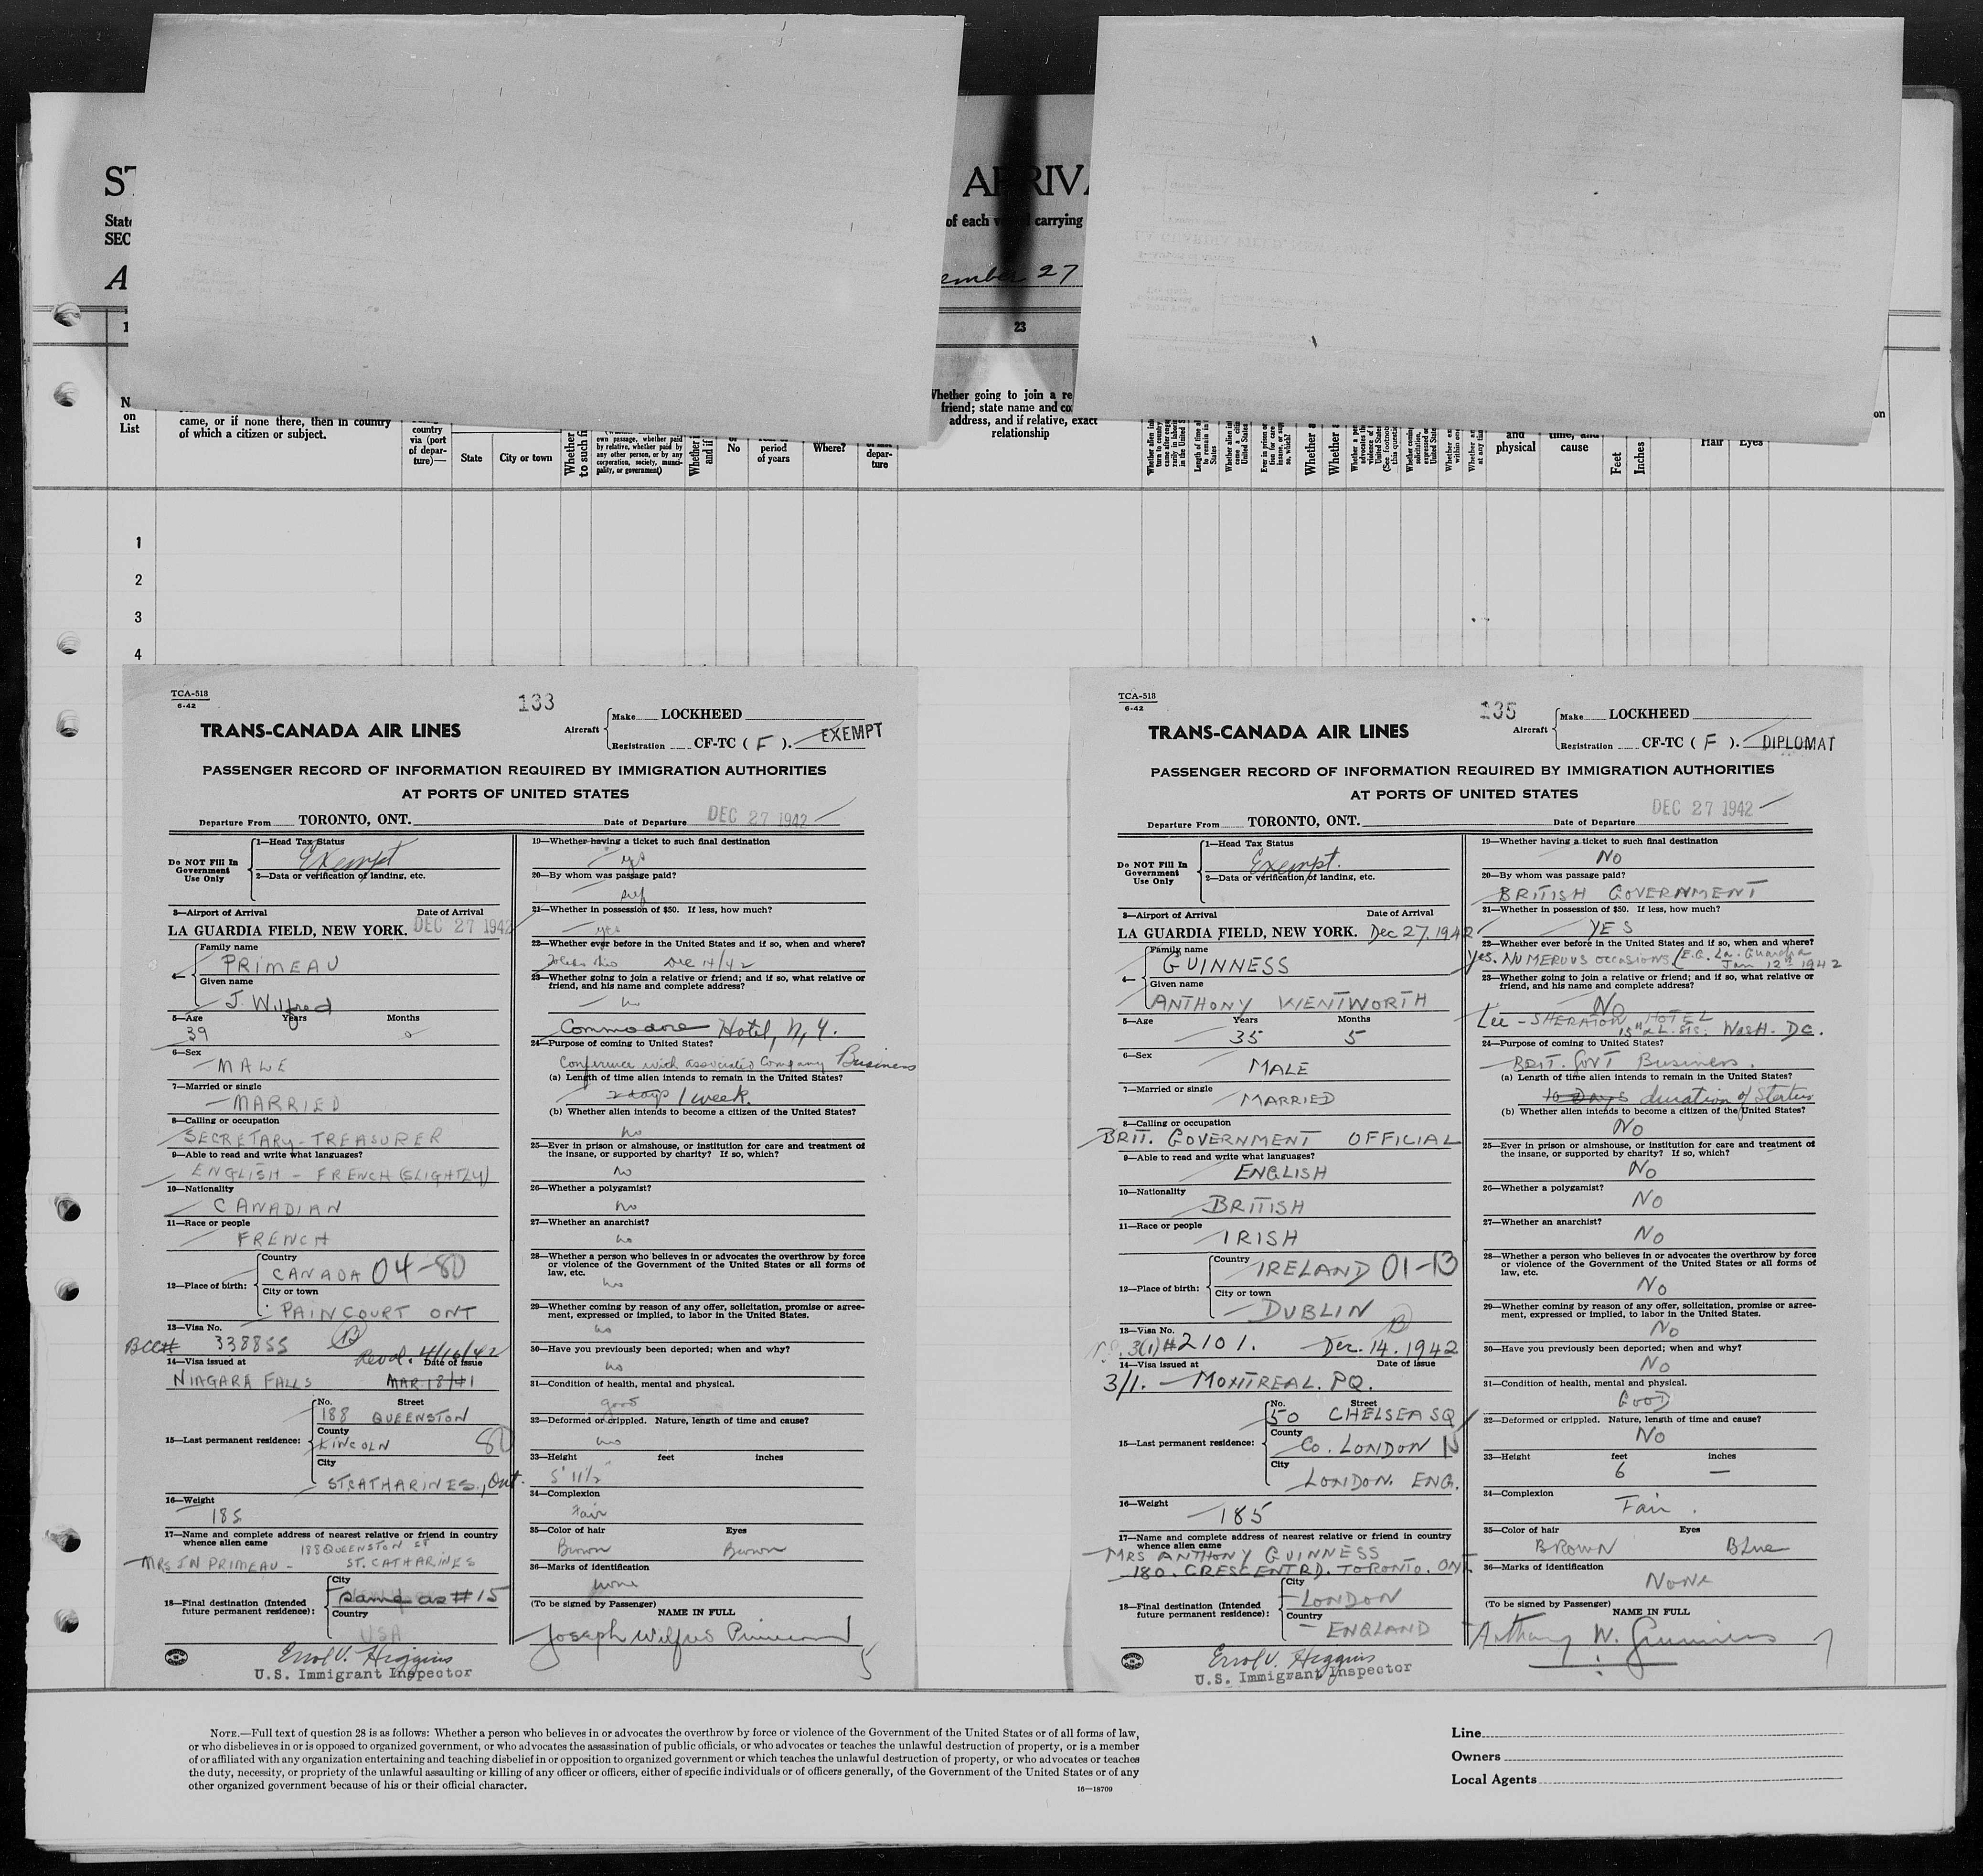 ST
ARRIVA
State
of each carrying
SEC
A
ember 27
1
23
No
on
List
came, or if none there, then in country
of which a citizen or subject.
country
via (port
of depar-
ture)—
State
City or town
Whether
to such fi
own passage, whether paid
by relative, whether paid by
any other person, or by any
corporation, society, munici-
pality, or government)
Whether i
and if
No
period
of years
Where?
depar-
ture
Whether going to join a re
friend; state name and co
address, and if relative, exact
relationship
Whether a
Whether a
and
physical
time, and
cause
Feet
Inches
Hair
Eyes
on
1
2
3
4
TCA-518
6-42
133
TRANS-CANADA AIR LINES
Aircraft
Make LOCKHEED
Registration CF-TC ( F ). EXEMPT
PASSENGER RECORD OF INFORMATION REQUIRED BY IMMIGRATION AUTHORITIES
AT PORTS OF UNITED STATES
Departure From TORONTO, ONT. Date of Departure DEC 27 1942
Do NOT Fill In
Government
Use Only
1—Head Tax Status
Exempt
2—Data or verification of landing, etc.
3—Airport of Arrival Date of Arrival
LA GUARDIA FIELD, NEW YORK. DEC 27 1942
4—
Family name
PRIMEAU
Given name
J Wilfred
5—Age Years Months
39 0
6—Sex
MALE
7—Married or single
MARRIED
8—Calling or occupation
SECRETARY-TREASURER
9—Able to read and write what languages?
ENGLISH - FRENCH (SLIGHTLY)
10—Nationality
CANADIAN
11—Race or people
FRENCH
12—Place of birth:
Country
CANADA 04-80
City or town
PAINCOURT ONT
13—Visa No.
BCC# 338855 B
Revd. 4/16/42
14—Visa issued at Date of Issue
NIAGARA FALLS MAR 18/41
15—Last permanent residence:
No. Street
188 QUEENSTON
County
LINCOLN 80
City
ST. CATHARINES, Ont.
16—Weight
185
17—Name and complete address of nearest relative or friend in country
whence alien came 188 QUEENSTON ST
MRS JW PRIMEAU - ST. CATHARINES
18—Final destination (Intended
future permanent residence):
City
Same as #15
Country
USA
Errol V. Higgins
U.S. Immigrant Inspector
19—Whether having a ticket to such final destination
yes
20—By whom was passage paid?
self
21—Whether in possession of $50. If less, how much?
yes
22—Whether ever before in the United States and if so, when and where?
Dec 14/42
23—Whether going to join a relative or friend; and if so, what relative or
friend, and his name and complete address?
no
Commodore Hotel, N.Y.
24—Purpose of coming to United States?
Conference with associated Company Business
(a) Length of time alien intends to remain in the United States?
2 days 1 week.
(b) Whether alien intends to become a citizen of the United States?
no
25—Ever in prison or almshouse, or institution for care and treatment of
the insane, or supported by charity? If so, which?
no
26—Whether a polygamist?
no
27—Whether an anarchist?
no
28—Whether a person who believes in or advocates the overthrow by force
or violence of the Government of the United States or all forms of
law, etc.
no
29—Whether coming by reason of any offer, solicitation, promise or agree-
ment, expressed or implied, to labor in the United States.
no
30—Have you previously been deported; when and why?
no
31—Condition of health, mental and physical.
good
32—Deformed or crippled. Nature, length of time and cause?
no
33—Height feet inches
5' 11½"
34—Complexion
Fair
35—Color of hair Eyes
Brown Brown
36—Marks of identification
none
(To be signed by Passenger)
NAME IN FULL
Joseph Wilfred Primeau
5
TCA-518
6-42
135
TRANS-CANADA AIR LINES
Aircraft
Make LOCKHEED
Registration CF-TC ( F ). DIPLOMAT
PASSENGER RECORD OF INFORMATION REQUIRED BY IMMIGRATION AUTHORITIES
AT PORTS OF UNITED STATES
Departure From TORONTO, ONT. Date of Departure DEC 27 1942
Do NOT Fill In
Government
Use Only
1—Head Tax Status
Exempt.
2—Data or verification of landing, etc.
3—Airport of Arrival Date of Arrival
LA GUARDIA FIELD, NEW YORK. Dec 27, 1942
4—
Family name
GUINNESS
Given name
ANTHONY WENTWORTH
5—Age Years Months
35 5
6—Sex
MALE
7—Married or single
MARRIED
8—Calling or occupation
BRIT. GOVERNMENT OFFICIAL
9—Able to read and write what languages?
ENGLISH
10—Nationality
BRITISH
11—Race or people
IRISH
12—Place of birth:
Country
IRELAND 01-13
City or town
DUBLIN
13—Visa No. B
3(1) #2101. Dec. 14. 1942
14—Visa issued at Date of Issue
3/1. - MONTREAL. PQ.
15—Last permanent residence:
No. Street
50 CHELSEA SQ
County
Co. LONDON
City
LONDON. ENG.
16—Weight
185
17—Name and complete address of nearest relative or friend in country
whence alien came
MRS ANTHONY GUINNESS
180. CRESCENT RD. TORONTO. ONT
18—Final destination (Intended
future permanent residence):
City
LONDON
Country
ENGLAND
Errol V. Higgins
U.S. Immigrant Inspector
19—Whether having a ticket to such final destination
NO
20—By whom was passage paid?
BRITISH GOVERNMENT
21—Whether in possession of $50. If less, how much?
YES
22—Whether ever before in the United States and if so, when and where?
Yes. NUMEROUS occasions (E.G. La. Guardia
Jan 12th 1942
23—Whether going to join a relative or friend; and if so, what relative or
friend, and his name and complete address?
No
Lee - SHERATON HOTEL
15th & L. Sts. Wash. DC.
24—Purpose of coming to United States?
BRIT. GOVT Business.
(a) Length of time alien intends to remain in the United States?
10 Days duration of Status
(b) Whether alien intends to become a citizen of the United States?
No
25—Ever in prison or almshouse, or institution for care and treatment of
the insane, or supported by charity? If so, which?
No
26—Whether a polygamist?
No
27—Whether an anarchist?
No
28—Whether a person who believes in or advocates the overthrow by force
or violence of the Government of the United States or all forms of
law, etc.
No
29—Whether coming by reason of any offer, solicitation, promise or agree-
ment, expressed or implied, to labor in the United States.
No
30—Have you previously been deported; when and why?
No
31—Condition of health, mental and physical.
GOOD
32—Deformed or crippled. Nature, length of time and cause?
No
33—Height feet inches
6 —
34—Complexion
Fair.
35—Color of hair Eyes
BROWN Blue
36—Marks of identification
None
(To be signed by Passenger)
NAME IN FULL
Anthony W. Guinness
NOTE.—Full text of question 28 is as follows: Whether a person who believes in or advocates the overthrow by force or violence of the Government of the United States or of all forms of law,
or who disbelieves in or is opposed to organized government, or who advocates the assassination of public officials, or who advocates or teaches the unlawful destruction of property, or is a member
of or affiliated with any organization entertaining and teaching disbelief in or opposition to organized government or which teaches the unlawful destruction of property, or who advocates or teaches
the duty, necessity, or propriety of the unlawful assaulting or killing of any officer or officers, either of specific individuals or of officers generally, of the Government of the United States or of any
other organized government because of his or their official character.
16—18709
Line
Owners
Local Agents